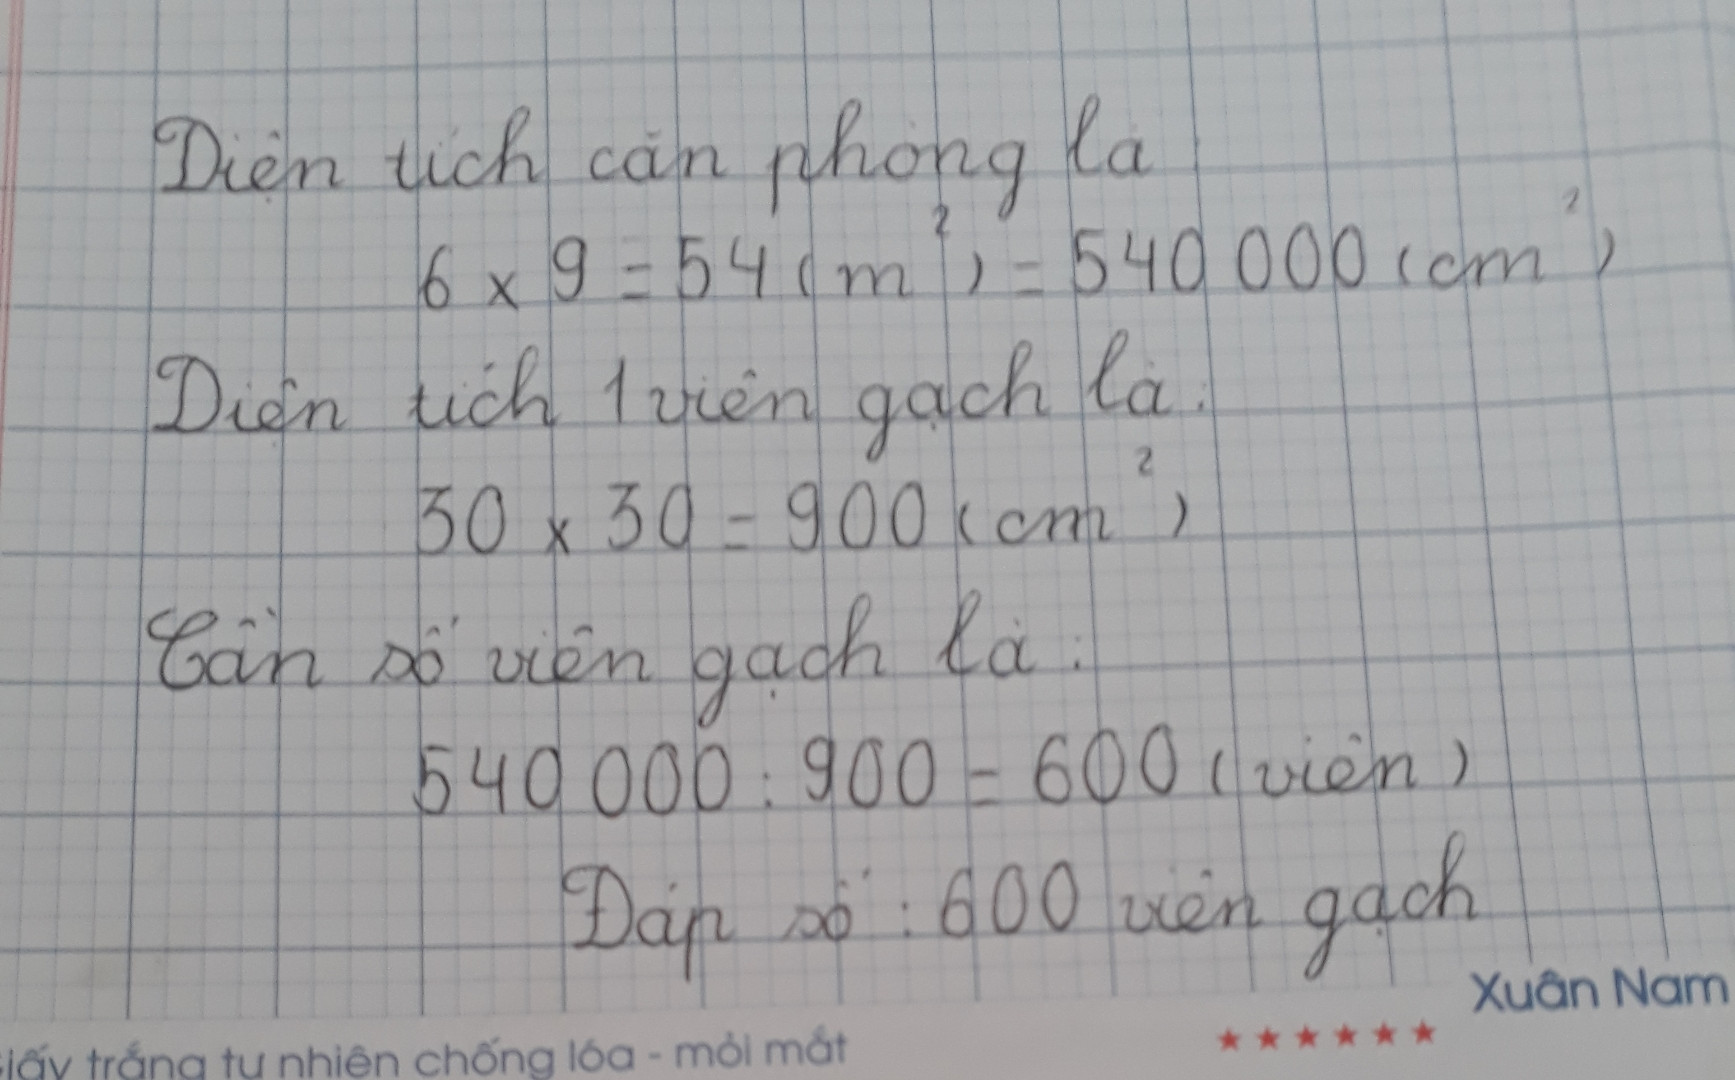 Diện tích căn phòng là
6 x 9 = 54 (m²) = 540 000 (cm²)
Diện tích 1 viên gạch là:
30 x 30 = 900 (cm²)
Cần số viên gạch là:
540 000 : 900 = 600 (viên)
Đáp số : 600 viên gạch
Xuân Nam
iấy trắng tự nhiên chống lóa - mỏi mắt